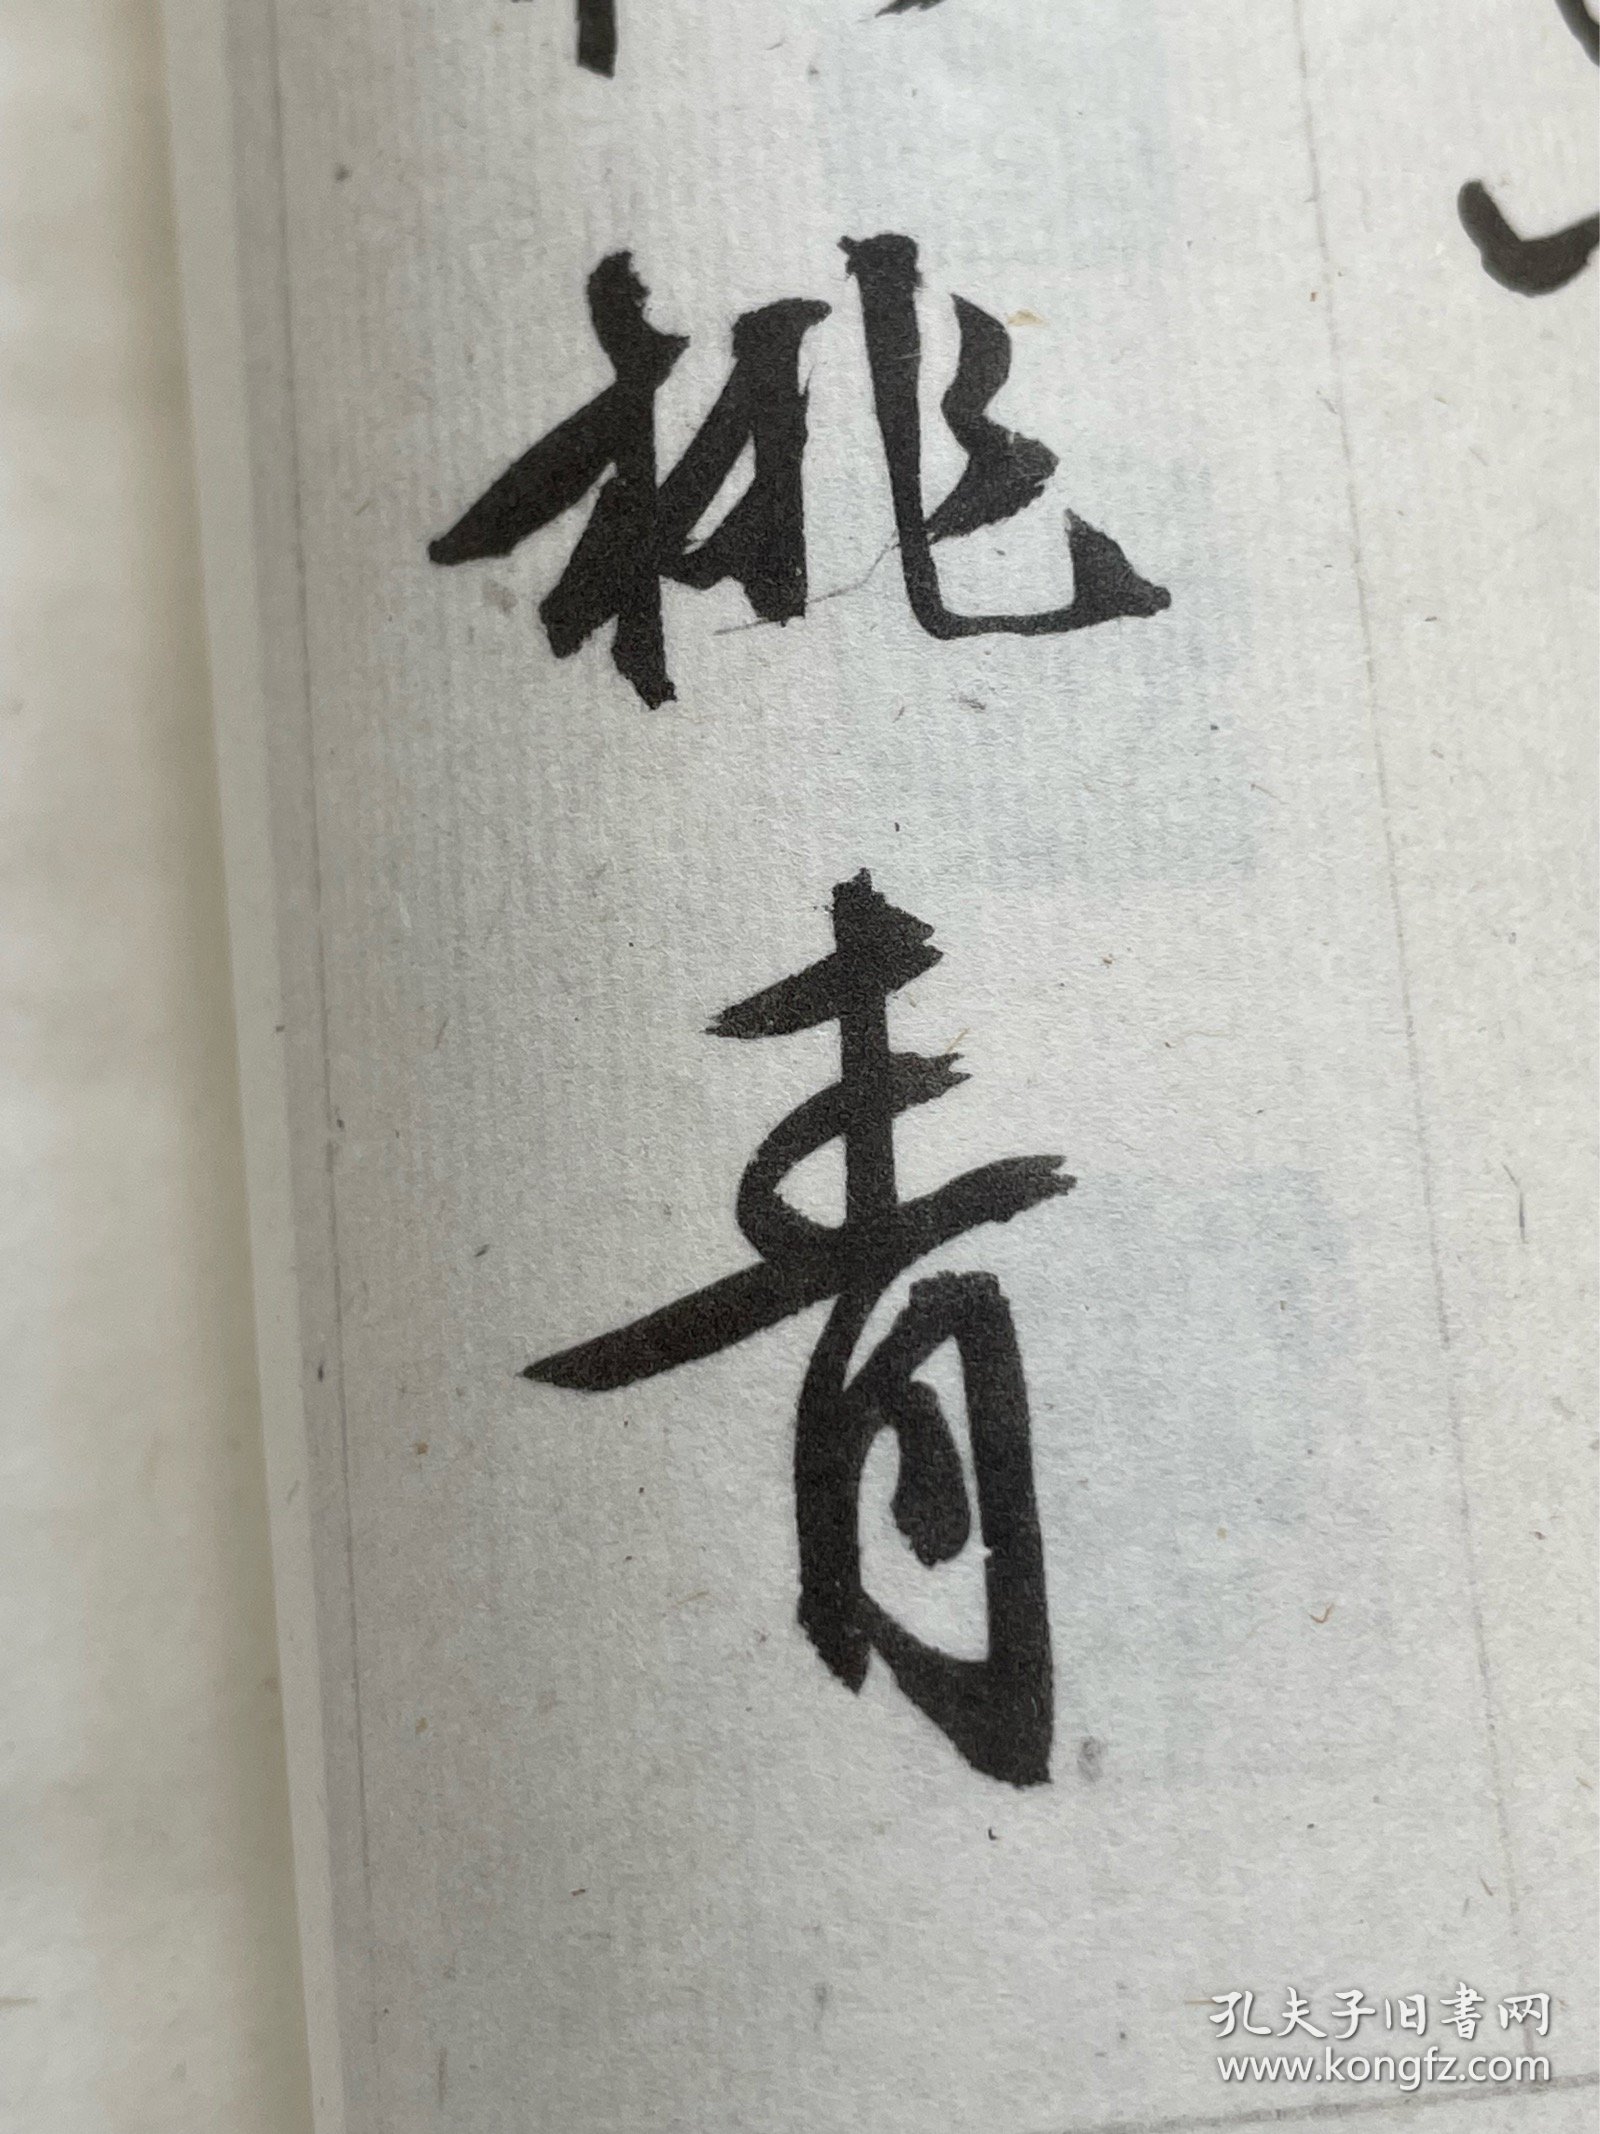 桃青
孔夫子旧书网
www.kongfz.com